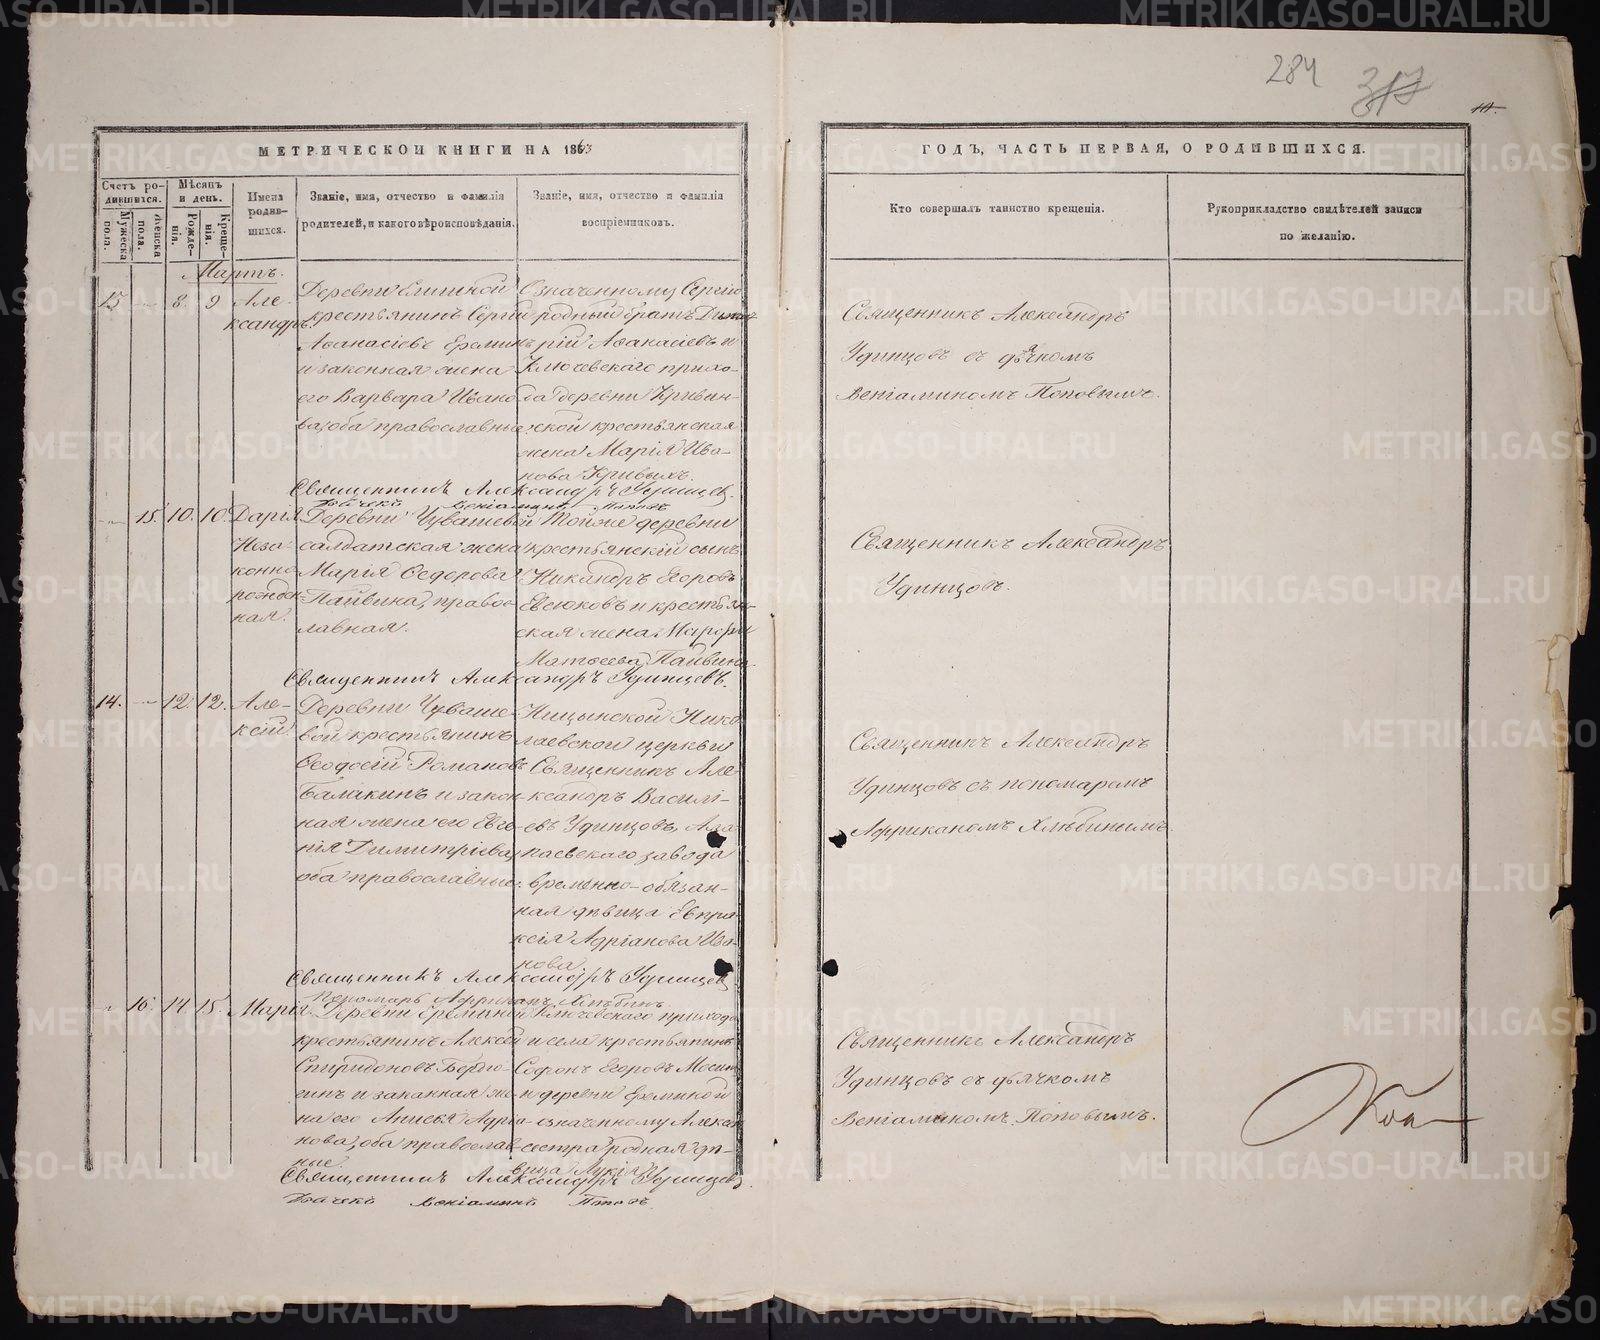 284 317
МЕТРИЧЕСКОЙ КНИГИ НА 1863
ГОДЪ, ЧАСТЬ ПЕРВАЯ, О РОДИВШИХСЯ.
Счетъ родившихся.
Мужеска пола.
Женска пола.
Мѣсяцъ и день.
Рожденія.
Крещенія.
Имена родившихся.
Званіе, имя, отчество и фамилія
родителей, и какого вѣроисповѣданія.
Званіе, имя, отчество и фамилія
воспріемниковъ.
Кто совершалъ таинство крещенія.
Рукоприкладство свидѣтелей записи
по желанію.
Мартъ.
8. 9 Але-
ксандръ.
Деревни
крестьянинъ Сергій
Аѳанасіевъ Ереминъ
и законная жена
его Варвара Ивано-
ва, оба православные
Означенному Сергію
родный братъ Димит-
рій Аѳанасіевъ и
Ключевскаго прихо-
да деревни Кривин-
ской крестьянская
жена Марія Ива-
нова Кривыхъ.
Священникъ Александръ
Удинцовъ съ дьячкомъ
Веніаминомъ Поповымъ.
Священникъ Александръ Удинцевъ.
Дьячекъ Веніаминъ Поповъ
15. 10. 10. Дарія
Неза-
конно
рожден
ная.
Деревни Чувашевой
салдатская жена
Марія Ѳедорова
Пайвина, право-
славная.
Той же деревни
крестьянскій сынъ
Никандръ Егоровъ
Евсюковъ и крестьян-
ская жена
Матѳеева Пайвина.
Священникъ Александръ
Удинцовъ.
Священникъ Александръ Удинцевъ.
14. 12. 12. Але-
ксій
Деревни Чуваше-
вой крестьянинъ
Ѳеодосій Романовъ
Балакинъ и закон-
ная жена его Евге-
нія Димитріева,
оба православные.
Ницынской Нико-
лаевской церкви
Священникъ Але-
ксандръ Василі-
евъ Удинцовъ, Ала-
паевскаго завода
временно-обязан-
ная дѣвица Евпра-
ксія Адріанова Ива-
нова
Священникъ Александръ
Удинцовъ съ пономаремъ
Африканомъ Хлѣбинымъ.
Священникъ Александръ Удинцевъ
Пономарь Африканъ Хлѣбинъ.
16. 14. 15. Марія.
Деревни Ереминой
крестьянинъ Алексѣй
Спиридоновъ
и законная же-
на его Адріа-
нова, оба православ-
ные.
Ключевскаго прихода
и села крестьянинъ
Софонъ Егоровъ
и деревни Ереминой
означенному Алексѣю
сестра родная дѣ-
вица Лукія
Священникъ Александръ
Удинцовъ съ дьячкомъ
Веніаминомъ Поповымъ.
Священникъ Александръ Удинцевъ
Дьячекъ Веніаминъ Поповъ.
METRIKI.GASO-URAL.RU